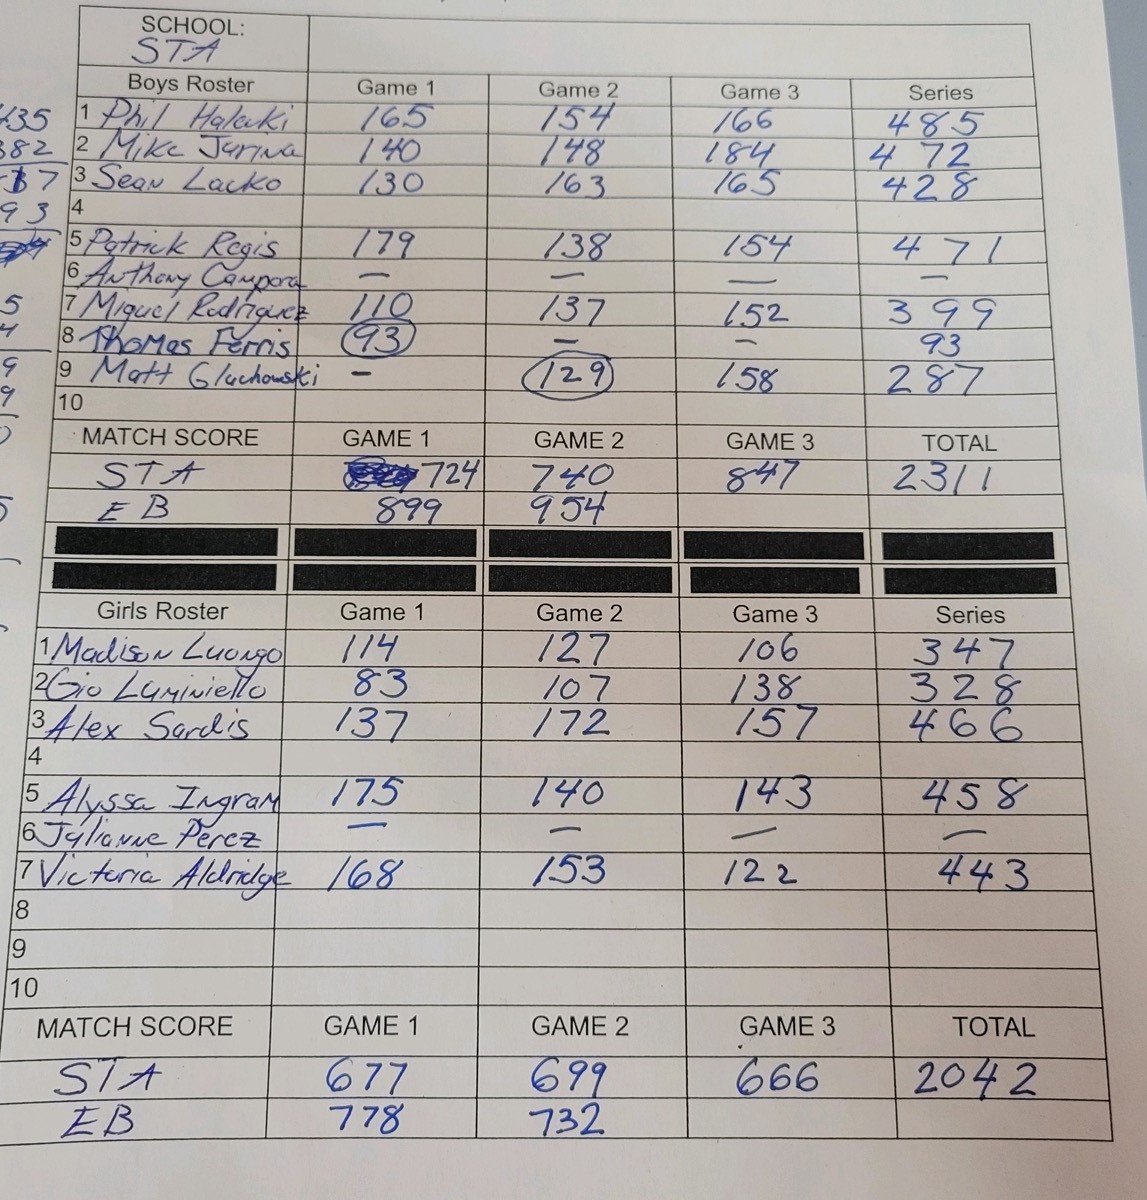 SCHOOL:
STA
Boys Roster Game 1 Game 2 Game 3 Series
1 Phil Halecki 165 154 166 485
2 Mike Jurina 140 148 184 472
3 Sean Lacko 130 163 165 428
4
5 Patrick Regis 179 138 154 471
6 Anthony Campora — — — —
7 Miguel Rodriguez 110 137 152 399
8 Thomas Ferris 93 — — 93
9 Matt Gluchowski — 129 158 287
10
MATCH SCORE GAME 1 GAME 2 GAME 3 TOTAL
STA 724 740 847 2311
EB 899 954
Girls Roster Game 1 Game 2 Game 3 Series
1 Madison Luongo 114 127 106 347
2 Gio Luminiello 83 107 138 328
3 Alex Sardis 137 172 157 466
4
5 Alyssa Ingram 175 140 143 458
6 Julianne Perez — — — —
7 Victoria Aldridge 168 153 122 443
8
9
10
MATCH SCORE GAME 1 GAME 2 GAME 3 TOTAL
STA 677 699 666 2042
EB 778 732